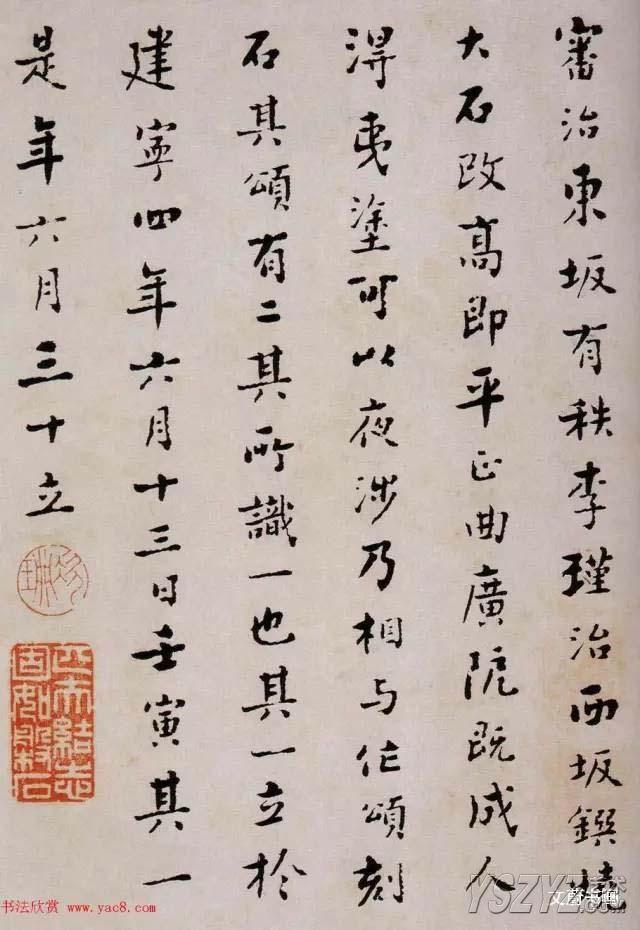 審治東坂有秩李瑾治西坂鐉燒
大石改高即平正曲廣阬既成人
得夷塗可以夜涉乃相与作頌刻
石其頌有二其所識一也其一立於
建寧四年六月十三日壬寅其一
是年六月三十立
书法欣赏 www.yac8.com